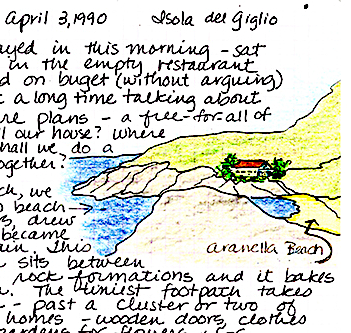 April 3, 1990 Isola del Giglio
ayed in this morning - sat
in the empty restaurant
d on buget (without arguing)
a long time talking about
re plans - a free-for-all of
l our house? Where
hall we do a
ogether?
ck, we
beach
s, drew
became
ain. This
sits between
rock formations and it bakes
. The tiniest footpath takes
- past a cluster or two of
homes - wooden doors, clothes
gardens for flowers
Aranella Beach